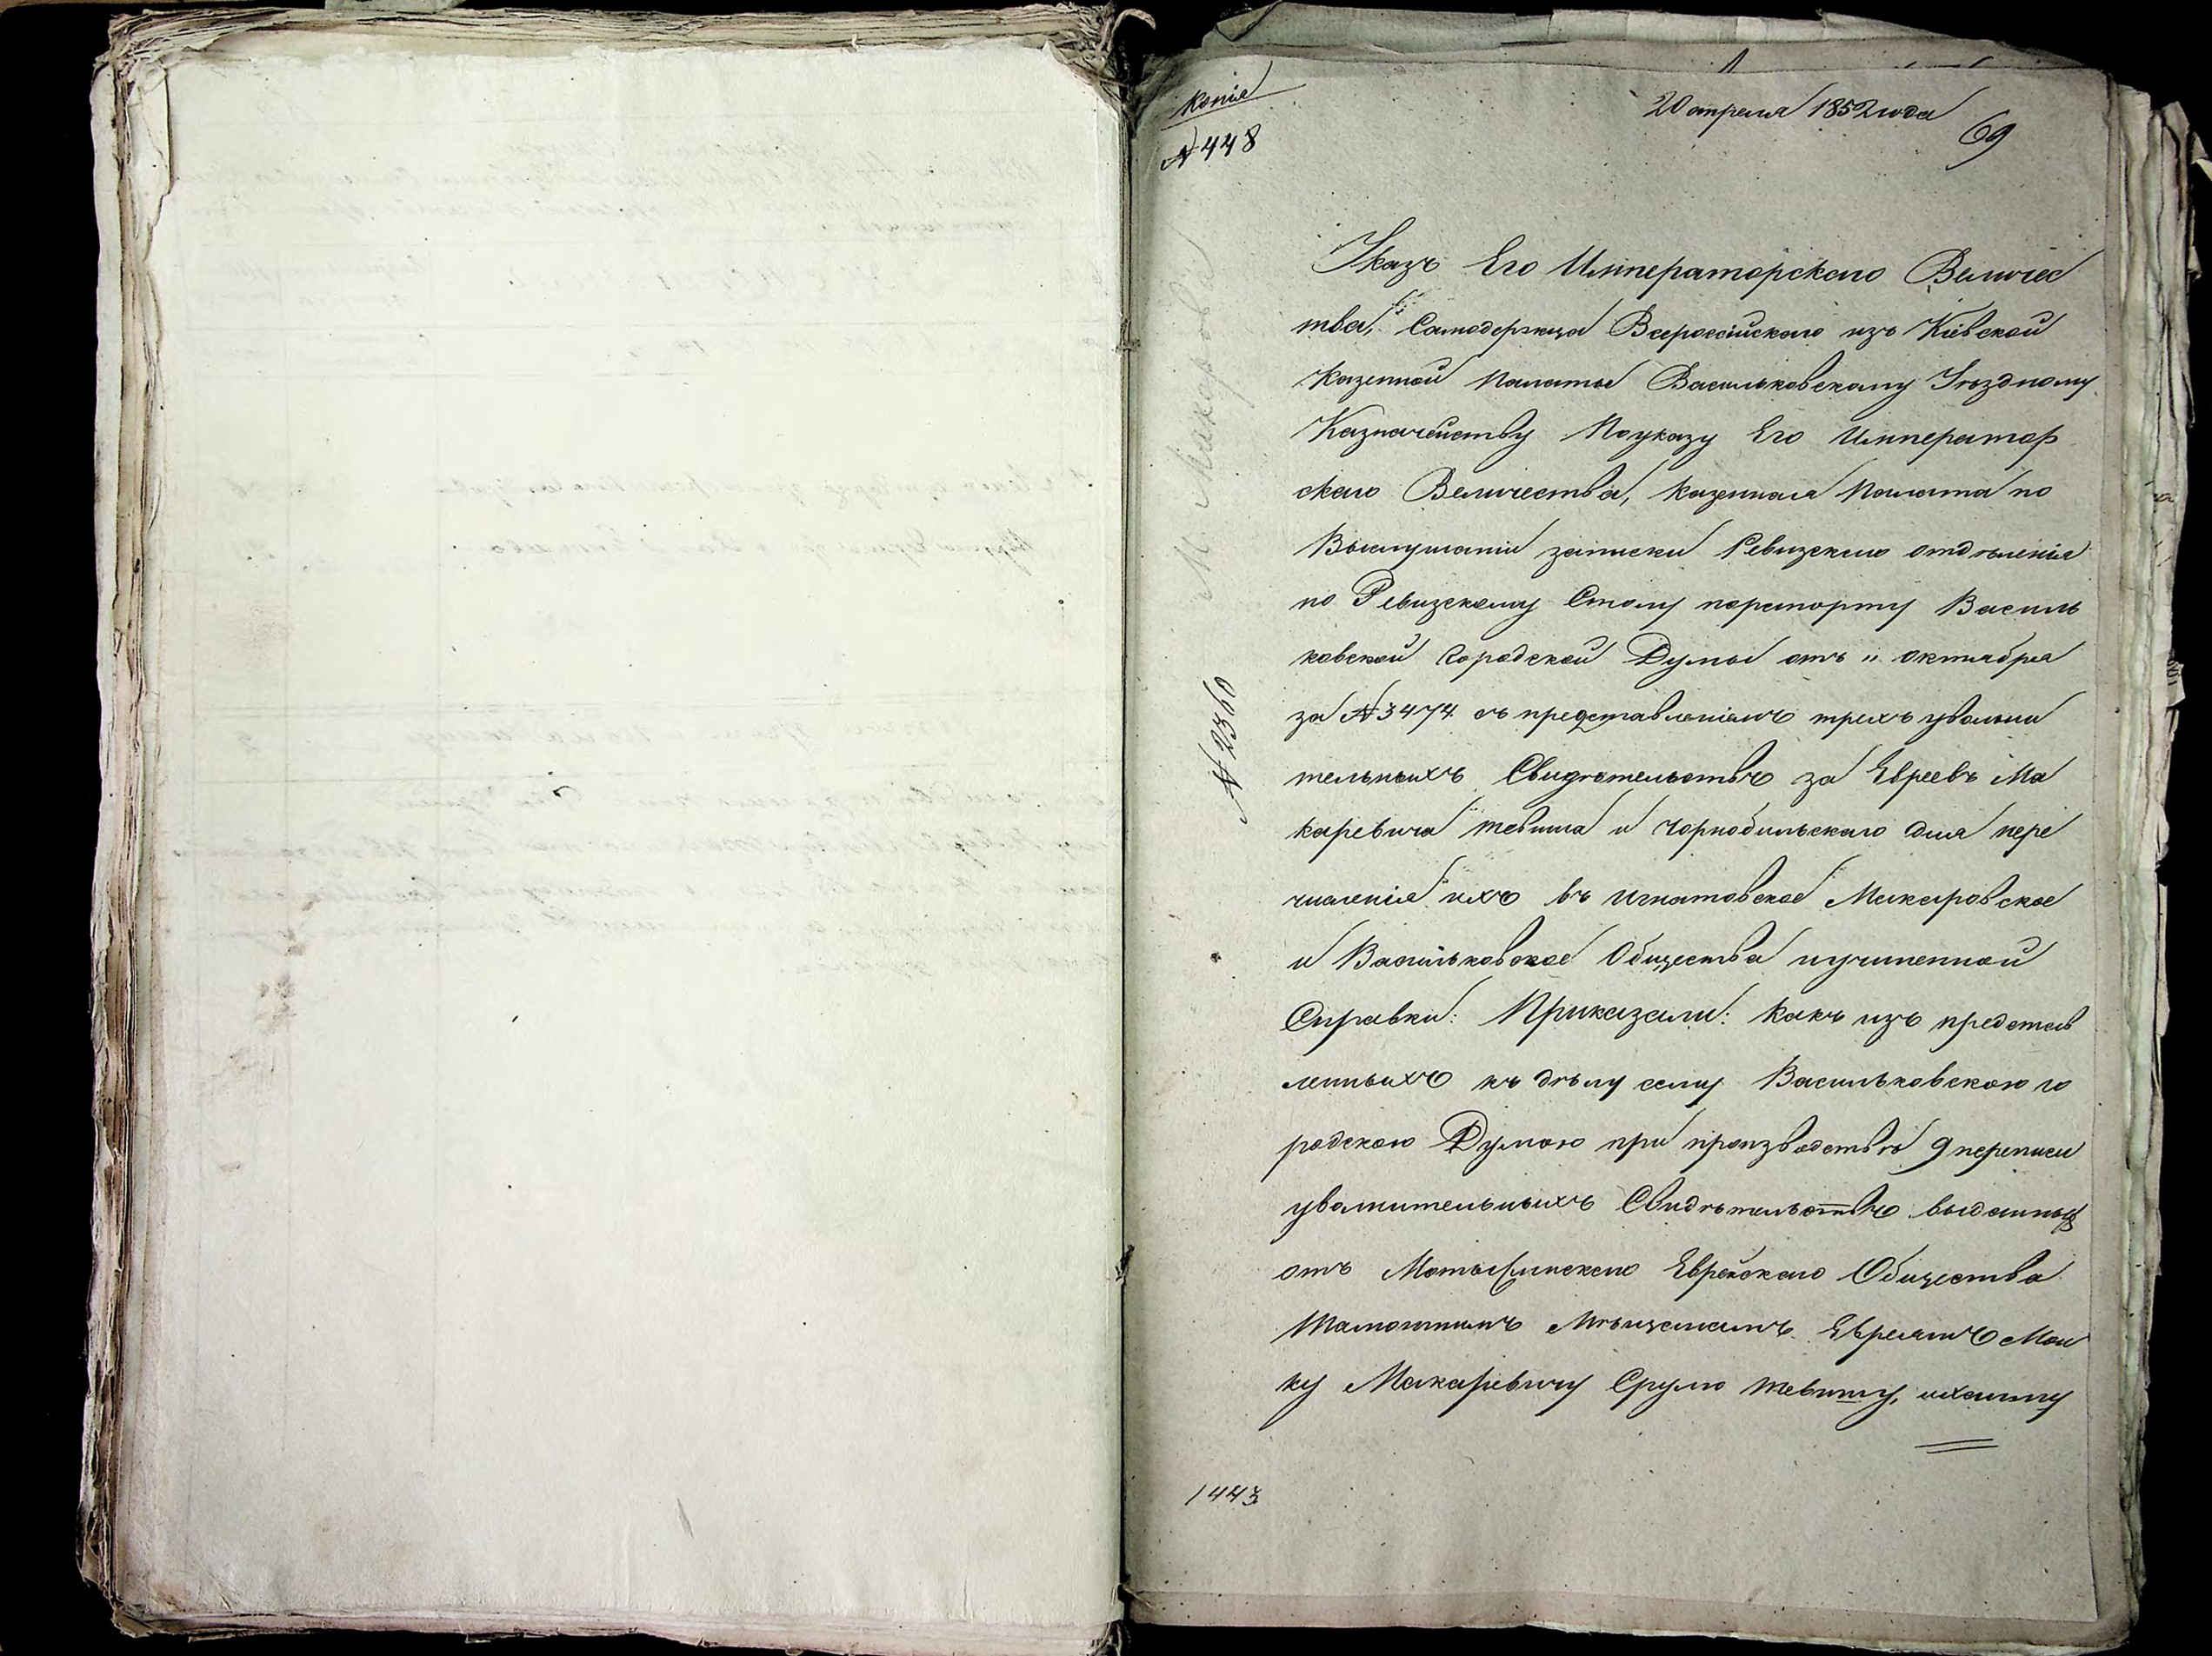 Копія
№ 448
20 апреля 1852 года
69
М. Макаровъ
№ 2360
Указъ Его Императорскаго Величес
тва, Самодержца Всероссійскаго изъ Кіевской
Казенной Палаты Васильковскому Уѣздному
Казначейству По указу Его Император
скаго Величества, Казенная Палата по
Выслушаніи записки Ревизскаго отдѣленія
по Ревизскому Столу порапорту Василь
ковской Городской Думы отъ 11 октября
за № 3474 съ представленіемъ трехъ увольни
тельныхъ Свидѣтельствъ за Евреевъ Ма
каревича Тевиша и Чорнобильскаго для пере
численія ихъ въ Игнатовское Макаровское
и Васильковское Общества иучиненной
Справки: Приказали: Какъ изъ представ
ленныхъ къ дѣлу сему Васильковскою го
родскою Думою при производствѣ 9 переписи
увольнительныхъ Свидѣтельствъ выданных
отъ Еврейскаго Общества
Тамошнимъ Мѣщанамъ Евреямъ Мош
ку Макаревичу Срулю Тевишу,
1443